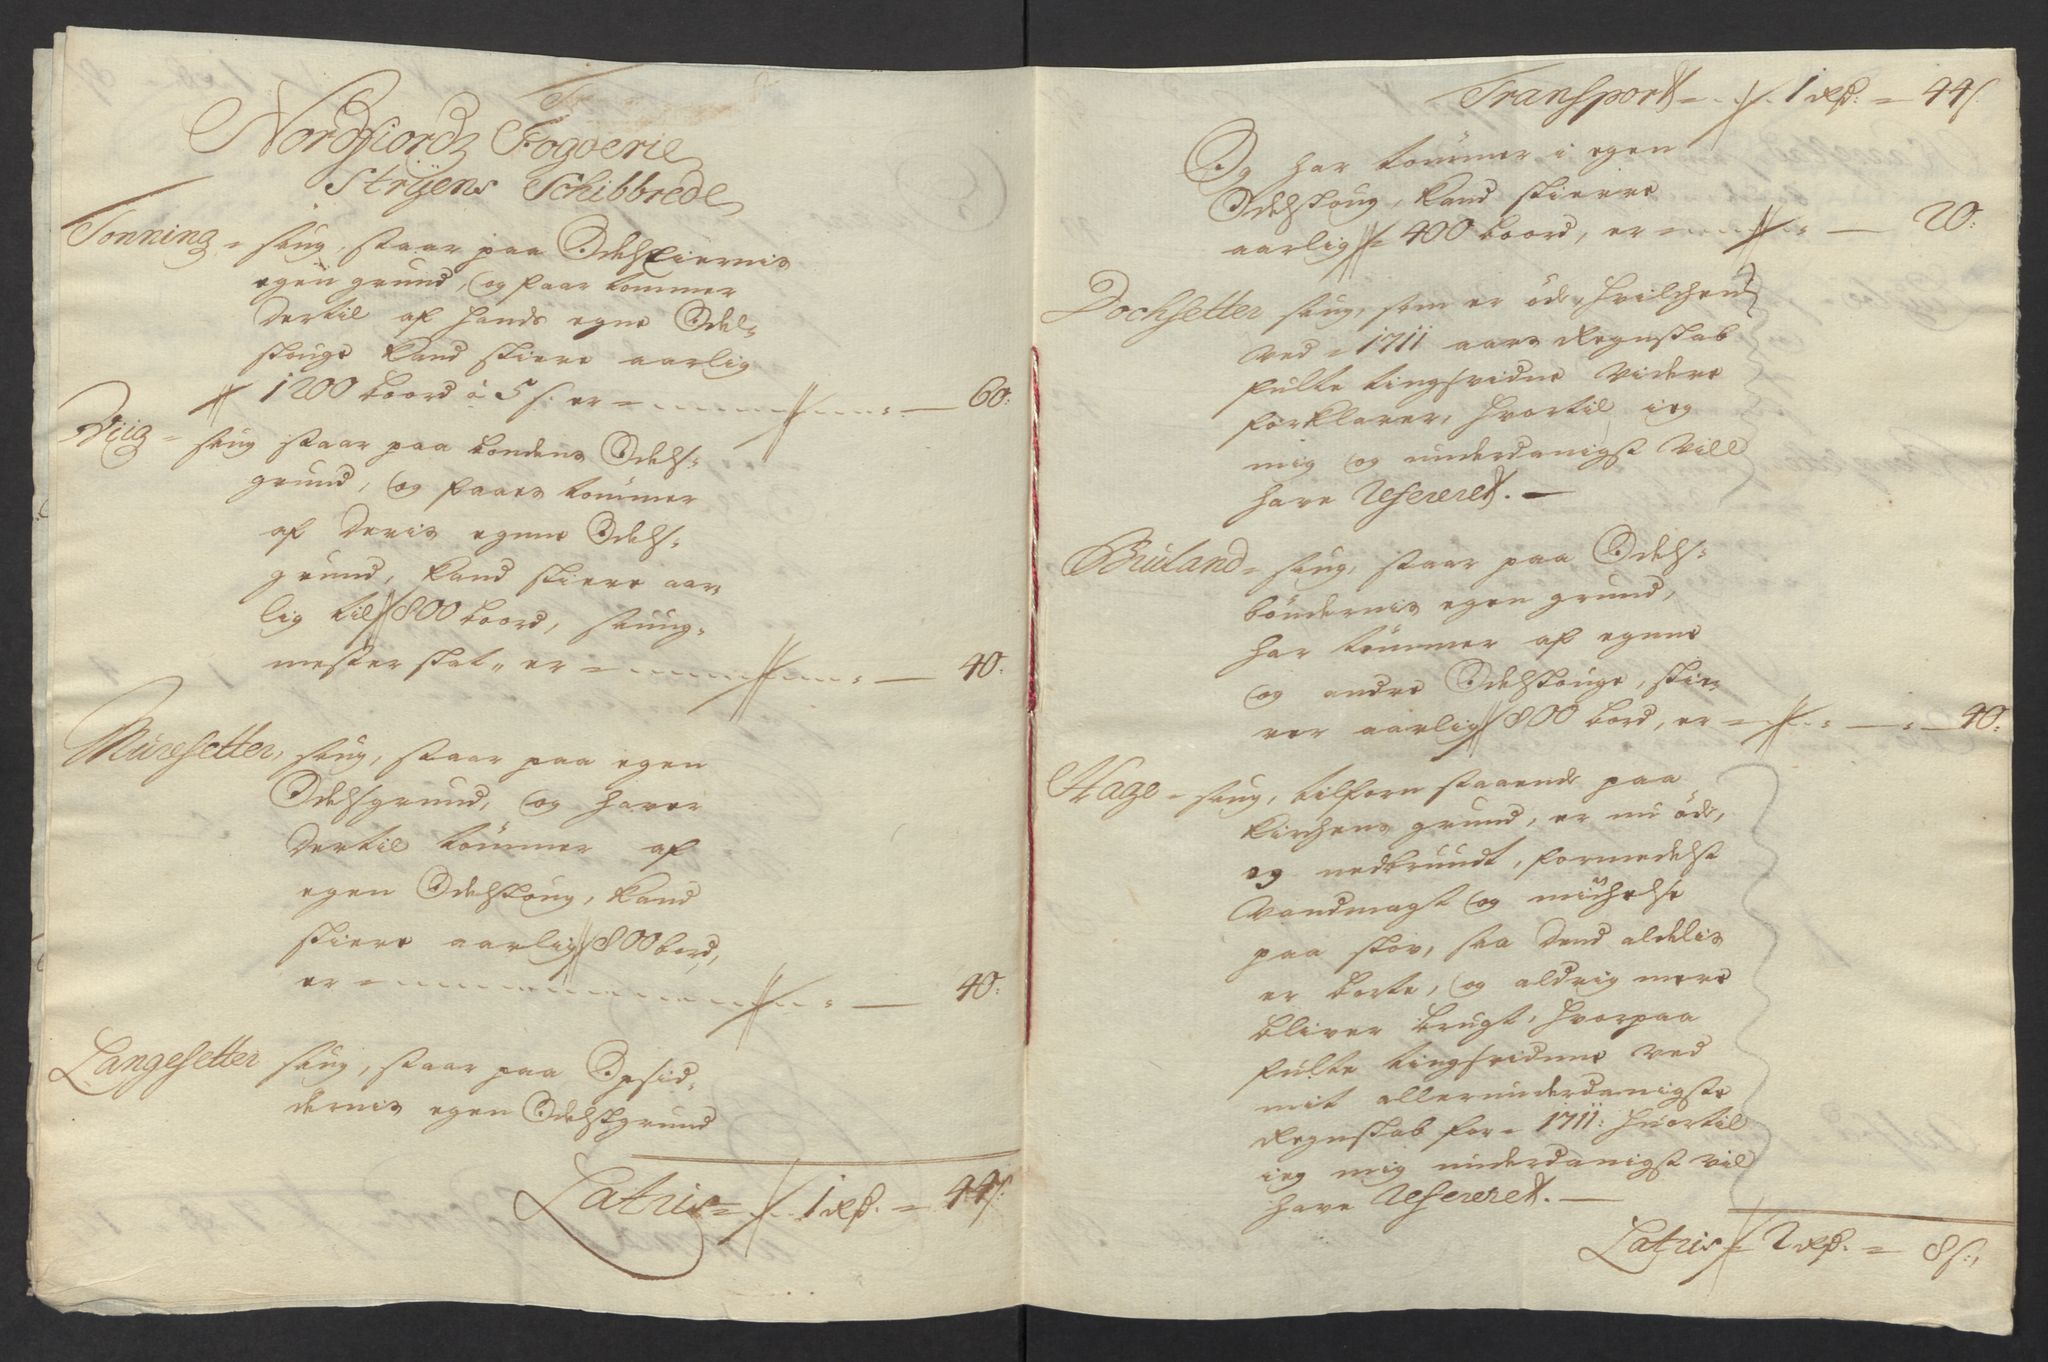 Nordfiordz Fogderie
Stryens Schibbrede
Tonning = saug, staar paa Odelseiernis
egen grund, og faar tømmer
dertil af hands egne Odel-
skouge kand skiere aarlig
1200 boord à 5 s: er = 60:
Viig = saug staar paa bondens Odels-
grund, og faaes tømmer
af deris egnne Odels-
grund, kand skiere aar-
lig til 800 boord, saug-
mester skat, er = 40:
Muresetter, saug, staar paa egen
Odelsgrund, og haver
dertil tømmer af
egen Odelskoug, kand
skiere aarlig 800 bord,
er = 40:
Langesetter saug, staar paa Opsid-
dernis egen Odelsgrund
Latus = 1 rd. = 44 s:
Transport = 1 rd: = 44 s:
Og har tømmer i egen
Odelskoug, kand skierre
aarlig = 400 boord, er = 20:
Dochsetter saug, som er öde, hvilchen
ved = 1711 aars Regnskab
fulte tingsvidne videre
forklarer, hvortil ieg
mig og underdanigst vill
have Refereret.
Bruland = saug, staar paa Odels-
böndernis egen grund,
har tømmer af egnne
og andre Odelskouge, skie-
rer aarlig 800 bord, er = 40:
Hage = saug, tilforn staaende paa
Kirchens grund, er nu öde,
og nedbrundt, formedelst
Vandmagt og mischelse
paa skov, saa dend aldelis
er borte, og aldrig mere
bliver brugt, hvorpaa
fulte tingsvidnne ved
mit allerunderdanigste
Regnskab for = 1711: hvortil
ieg mig underdanigst vil
have Refereret.
Latus = 2 rd. = 8 s: